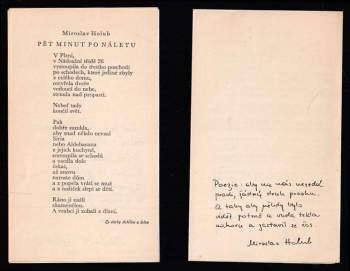 Miroslav Holub
PĚT MINUT PO NÁLETU
V Plzni,
v Nádražní třídě 26
vystoupila do třetího poschodí
po schodech, které jediné zbyly
z celého domu,
otevřela dveře
vedoucí do nebe,
stanula nad propastí.
Neboť tady
končil svět.
Pak
dobře zamkla,
aby snad někdo nevzal
Siria
nebo Aldebarana
z její kuchyně,
sestoupila se schodů
a usedla dole
čekat,
až znovu
naroste dům
a z popela vstal se muž
a z
Ráno ji našli
zkamenělou.
A vrabci jí zobali z dlaní.
Ze sbírky Achilles a želva
Poezie: aby na nás nesedal
prach, žádný druh prachu.
A taky aby někdy bylo
vidět potmě a voda tekla
nahoru a zastavil se čas.
Miroslav Holub